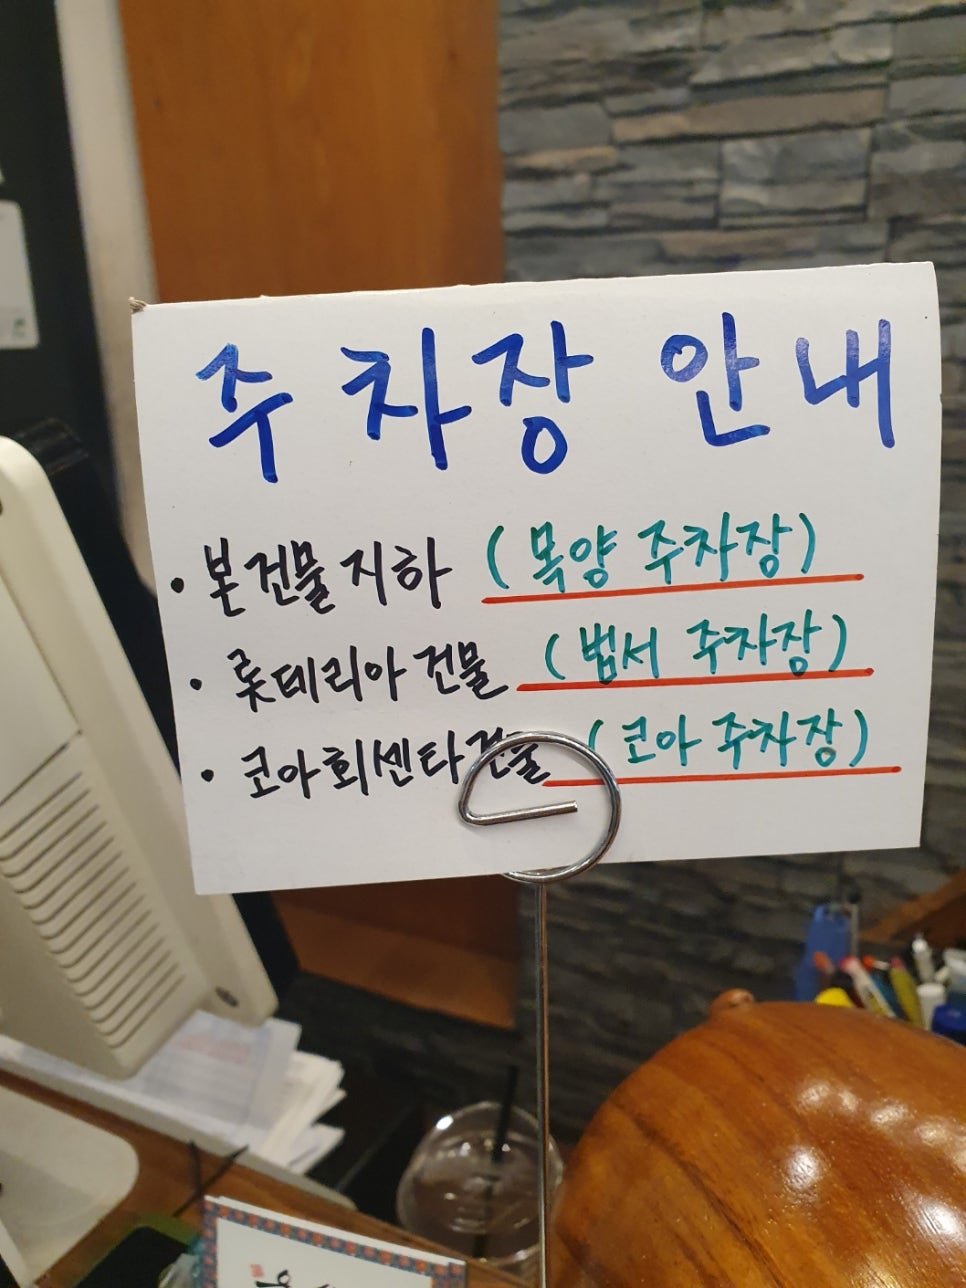 주차장 안내
· 본건물 지하 (목양 주차장)
· 롯데리아 건물 (범서 주차장)
· 코아회센타 건물 (코아 주차장)